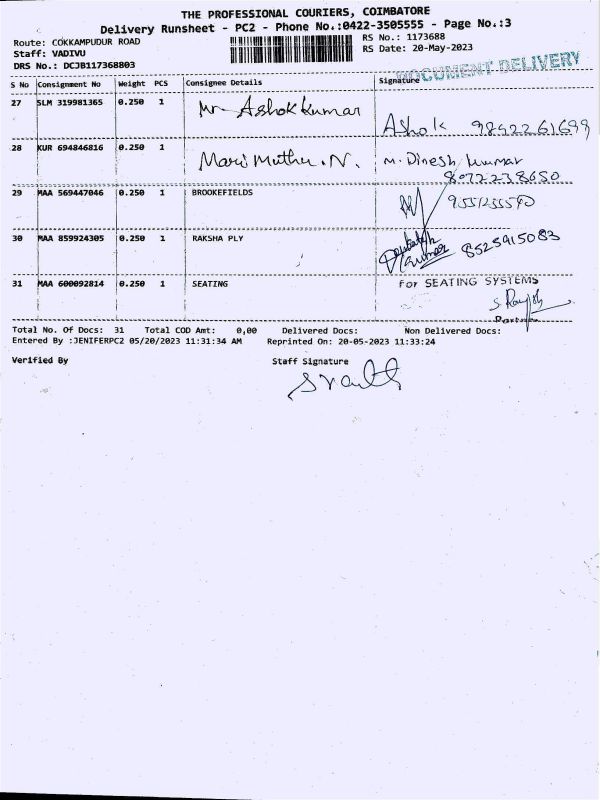 THE PROFESSIONAL COURIERS, COIMBATORE
Delivery Runsheet - PC2 - Phone No.:0422-3505555 - Page No.:3
Route: COKKAMPUDUR ROAD
RS No.: 1173688
Staff: VADIVU
RS Date: 20-May-2023
DRS No.: DCJB117368803
DOCUMENT DELIVERY
S No Consignment No Weight PCS Consignee Details Signature
27 SLM 319981365 0.250 1 Mr Ashok kumar
Ashok 9842261699
28 KUR 694846816 0.250 1 Mari Muthu.N. M. Dinesh kumar
8072238650
29 MAA 569447046 0.250 1 BROOKEFIELDS
30 MAA 859924305 0.250 1 RAKSHA PLY kumar 8525915083
31 MAA 600092814 0.250 1 SEATING For SEATING SYSTEMS
Partner
Total No. Of Docs: 31 Total COD Amt: 0,00 Delivered Docs: Non Delivered Docs:
Entered By :JENIFERPC2 05/20/2023 11:31:34 AM Reprinted On: 20-05-2023 11:33:24
Verified By Staff Signature